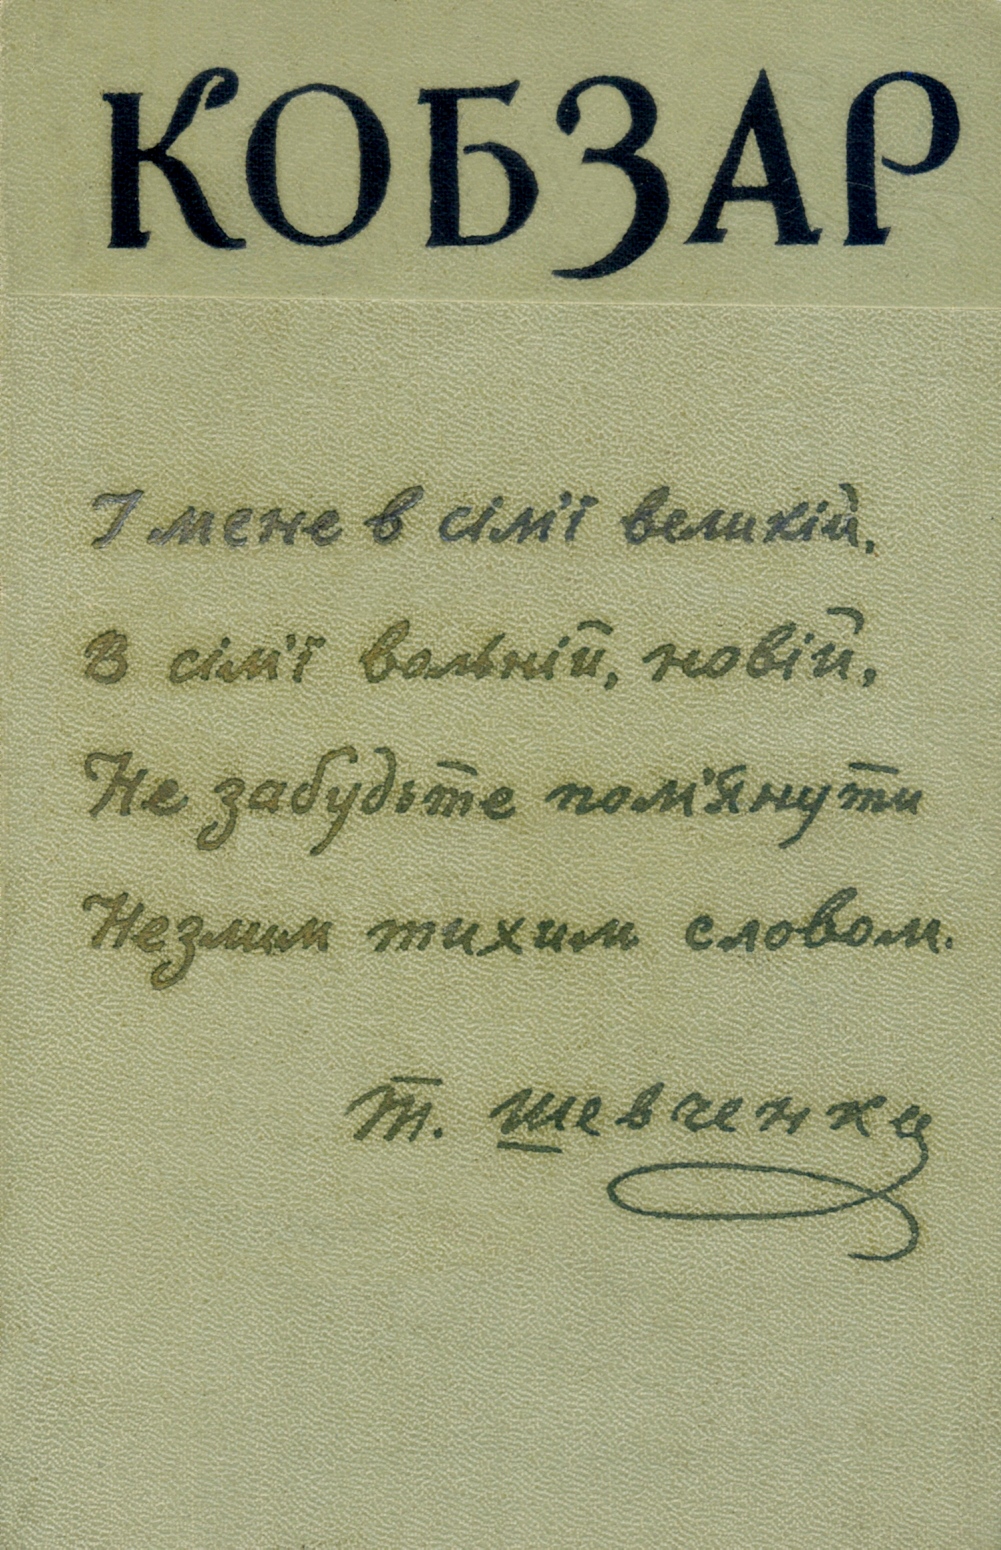 КОБЗАР
І мене в сім'ї великій,
В сім'ї вольній, новій,
Не забудьте пом'янути
Незлим тихим словом.
Т. Шевченко